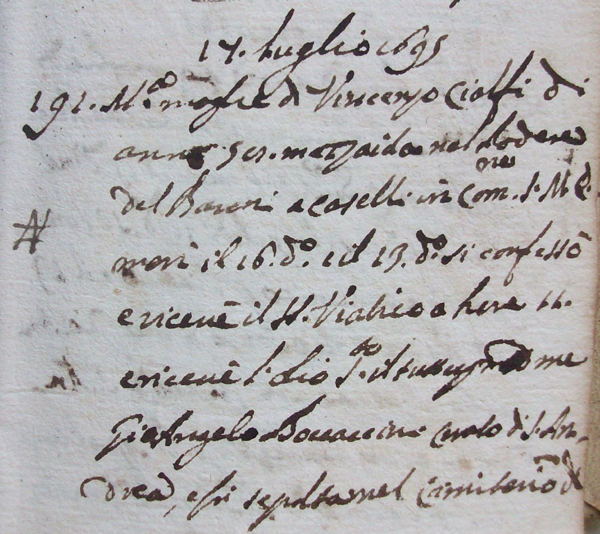 17. Luglio 1695
191. M.ª moglie di Vincenzo Ciolfi di
anni 50. mezzaida nel Podere
del Baroni a Caselli in Com.ne S. M.
morì il 16. d.º e il 13. d.º si confessò
e ricevè il SS. Viatico a hore 11.
e ricevè l'olio S.to il tutto me
Gio Angelo Boccaccini Curato di S. An-
drea, e fu sepolta nel Cimiterio d